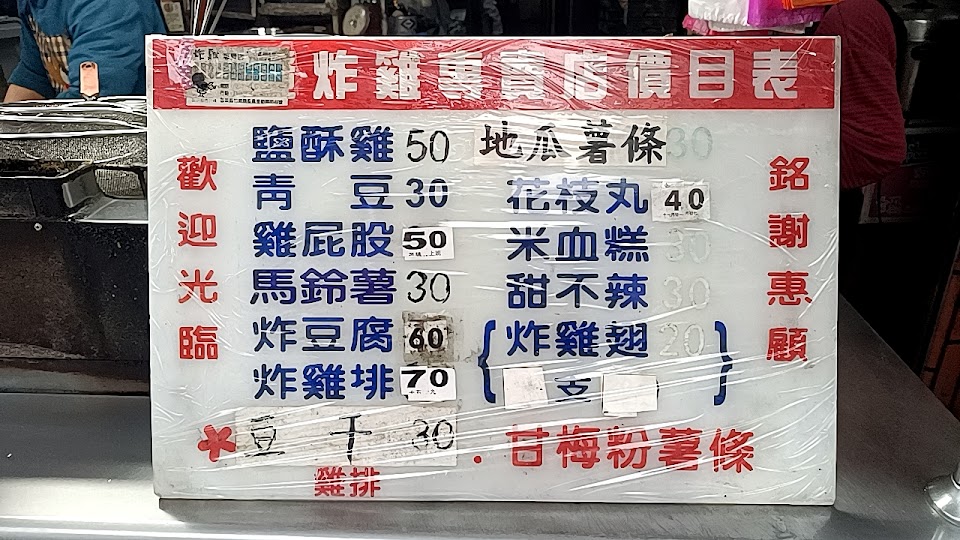 炸雞專賣店價目表
歡迎光臨
鹽酥雞 50
青豆 30
雞屁股 50
馬鈴薯 30
炸豆腐 60
炸雞排 70
豆干 30
雞排
地瓜薯條 30
花枝丸 40
米血糕 30
甜不辣 30
炸雞翅 20
. 甘梅粉薯條
銘謝惠顧